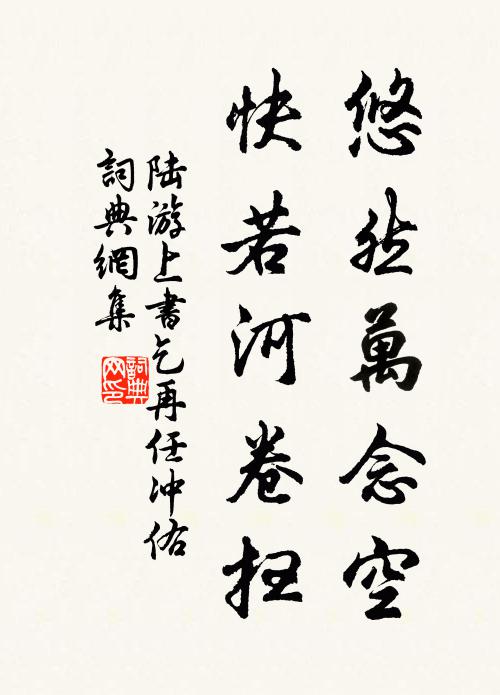 悠然萬念空
快若河卷扫
陆游上書乞再任冲佑
詞典網集
詞典网印